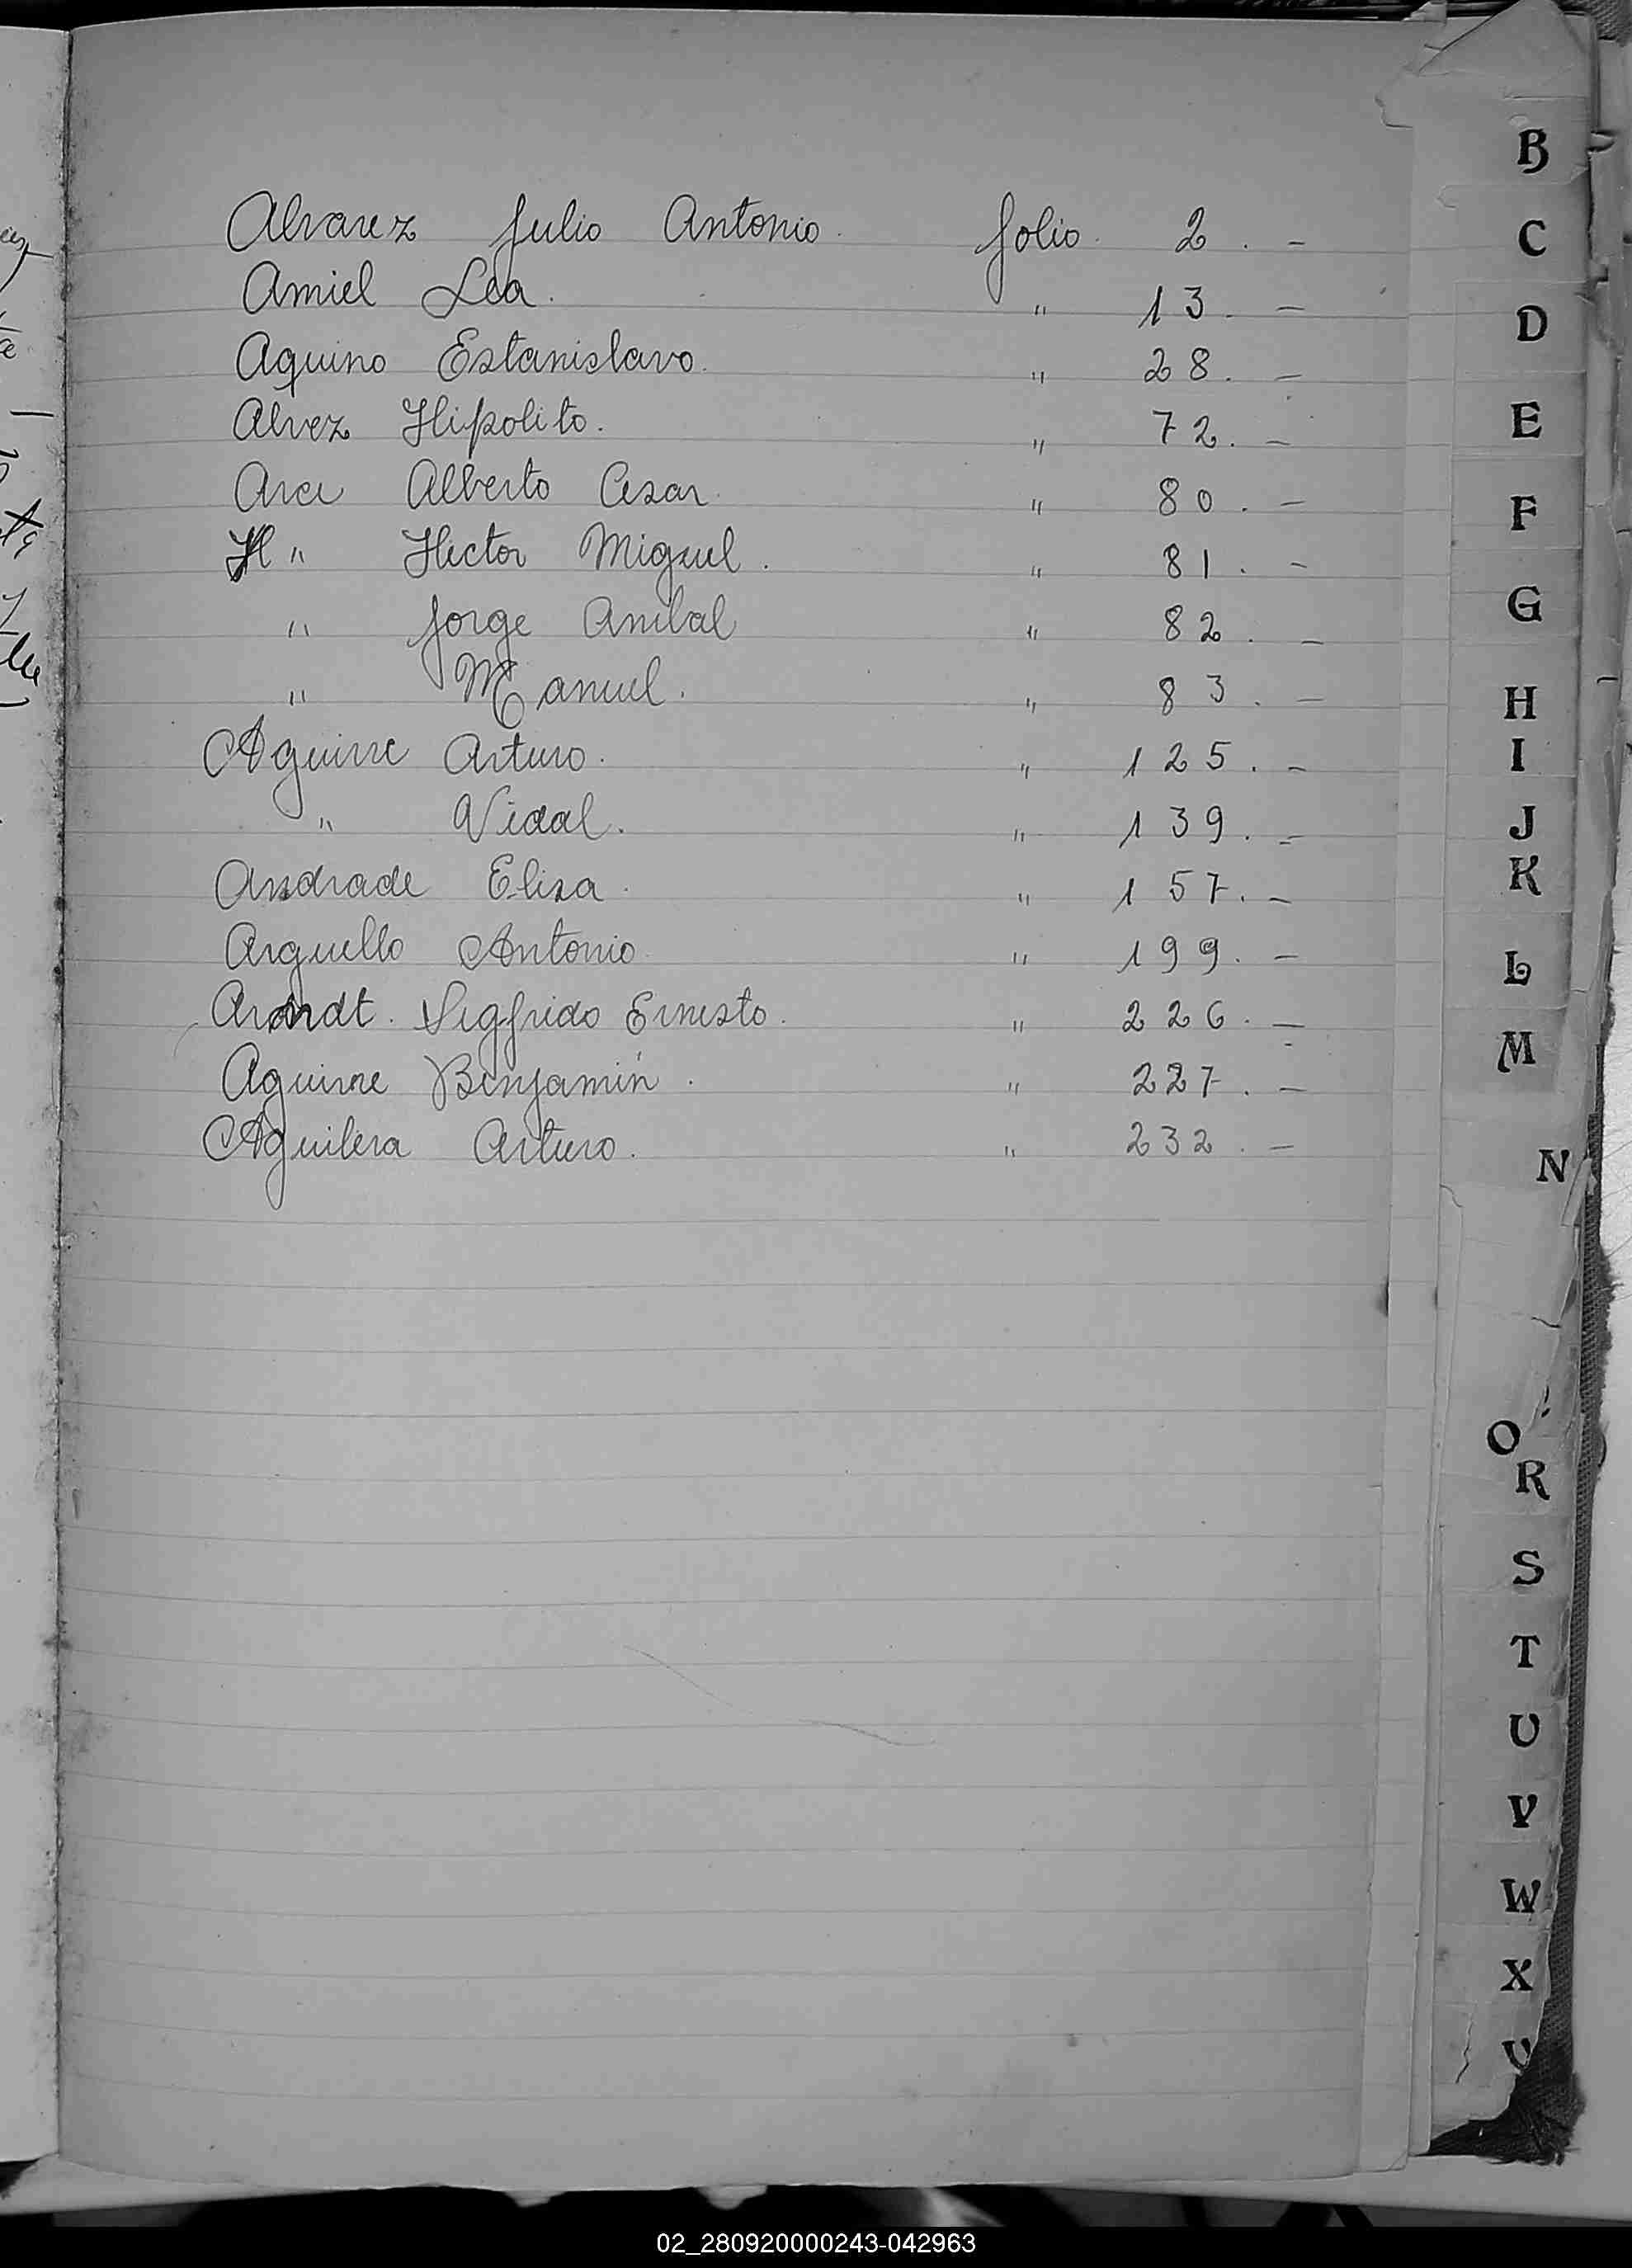 Alvarez Julio Antonio. folio. 2. -
Amiel Lea. " 13. -
Aquino Estanislavo. " 28. -
Alvez Hipolito. " 72. -
Arce Alberto Cesar. " 80. -
H " Hector Miguel. " 81. -
" Jorge Anibal " 82. -
" Manuel. " 83. -
Aguirre Arturo. " 125. -
" Vidal. " 139. -
Andrade Elisa. " 157. -
Arguello Antonio. " 199. -
Arndt. Segfrido Ernesto. " 226. -
Aguirre Benjamín. " 227. -
Aguilera Arturo. " 232. -
B
C
D
E
F
G
H
I
J
K
L
M
N
O
R
S
T
U
V
W
X
02_280920000243-042963